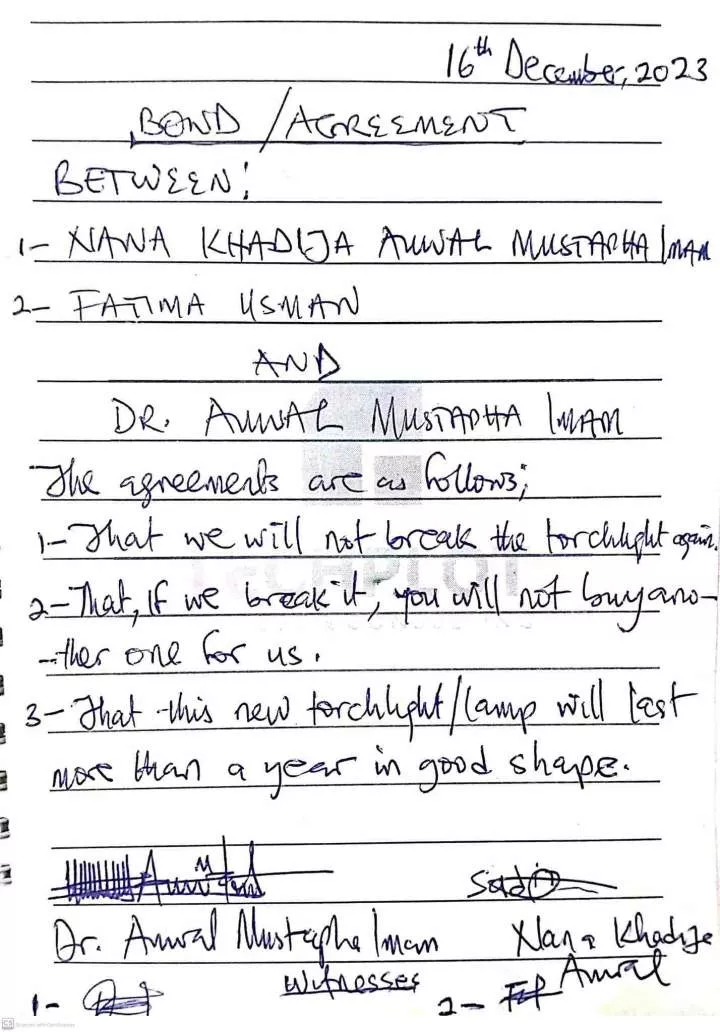 16th December, 2023
BOND / AGREEMENT
BETWEEN:
1- NANA KHADIJA AUWAL MUSTAPHA IMAM
2- FATIMA USMAN
AND
DR. AUWAL MUSTAPHA IMAM
The agreements are as follows;
1- That we will not break the torchlight again.
2- That, if we break it, you will not buy ano-
-ther one for us.
3- That this new torchlight/lamp will last
more than a year in good shape.
Dr. Auwal Mustapha Imam Nana Khadija
Auwal
Witnesses
1- 2-
CS Scanned with CamScanner